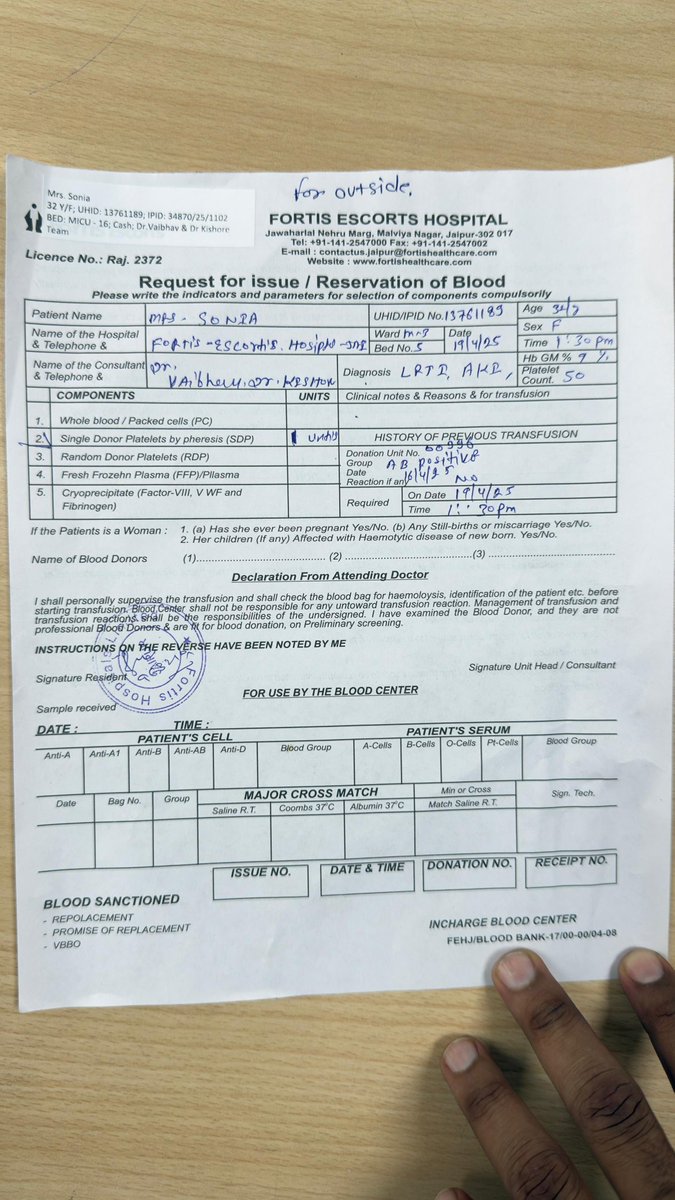 for outside.
Mrs. Sonia
32 Y/F; UHID: 13761189; IPID: 34870/25/1102
BED: MICU - 16; Cash; Dr.Vaibhav & Dr Kishore
Team
FORTIS ESCORTS HOSPITAL
Jawaharlal Nehru Marg, Malviya Nagar, Jaipur-302 017
Tel: +91-141-2547000 Fax: +91-141-2547002
E-mail : contactus.jaipur@fortishealthcare.com
Website : www.fortishealthcare.com
Licence No.: Raj. 2372
Request for issue / Reservation of Blood
Please write the indicators and parameters for selection of components compulsorily
Patient Name MRS - SONIA UHID/IPID No. 13761189 Age
Sex F
Name of the Hospital & Telephone & Fortis-Escorts. Ward Bed No. 5 Date 19/4/25 Time 1:30 pm
Name of the Consultant & Telephone & Dr. Diagnosis LRTI, AKI, Hb GM % 9 %
Platelet Count. 50
COMPONENTS UNITS Clinical notes & Reasons & for transfusion
1. Whole blood / Packed cells (PC)
2. Single Donor Platelets by pheresis (SDP) 1 HISTORY OF PREVIOUS TRANSFUSION
3. Random Donor Platelets (RDP) Donation Unit No.
Group AB positive
4. Fresh Frozehn Plasma (FFP)/Pllasma Date 16/4/25
Reaction if any NO
5. Cryoprecipitate (Factor-VIII, V WF and Fibrinogen) Required On Date 19/4/25
Time 1:30pm
If the Patients is a Woman : 1. (a) Has she ever been pregnant Yes/No. (b) Any Still-births or miscarriage Yes/No.
2. Her children (If any) Affected with Haemotytic disease of new born. Yes/No.
Name of Blood Donors (1)................................ (2) ................................(3) ................................
Declaration From Attending Doctor
I shall personally supervise the transfusion and shall check the blood bag for haemoloysis, identification of the patient etc. before
starting transfusion. Blood Center shall not be responsible for any untoward transfusion reaction. Management of transfusion and
transfusion reactions shall be the responsibilities of the undersigned. I have examined the Blood Donor, and they are not
professional Blood Donors & are fit for blood donation, on Preliminary screening.
INSTRUCTIONS ON THE REVERSE HAVE BEEN NOTED BY ME
Signature Resident Signature Unit Head / Consultant
Fortis Hospital
FOR USE BY THE BLOOD CENTER
Sample received
DATE : TIME :
PATIENT'S CELL PATIENT'S SERUM
Anti-A Anti-A1 Anti-B Anti-AB Anti-D Blood Group A-Cells B-Cells O-Cells Pt-Cells Blood Group
Date Bag No. Group MAJOR CROSS MATCH Min or Cross Sign. Tech.
Saline R.T. Coombs 37°C Albumin 37°C Match Saline R.T.
ISSUE NO. DATE & TIME DONATION NO. RECEIPT NO.
BLOOD SANCTIONED
- REPOLACEMENT
- PROMISE OF REPLACEMENT
- VBBO
INCHARGE BLOOD CENTER
FEHJ/BLOOD BANK-17/00-00/04-08